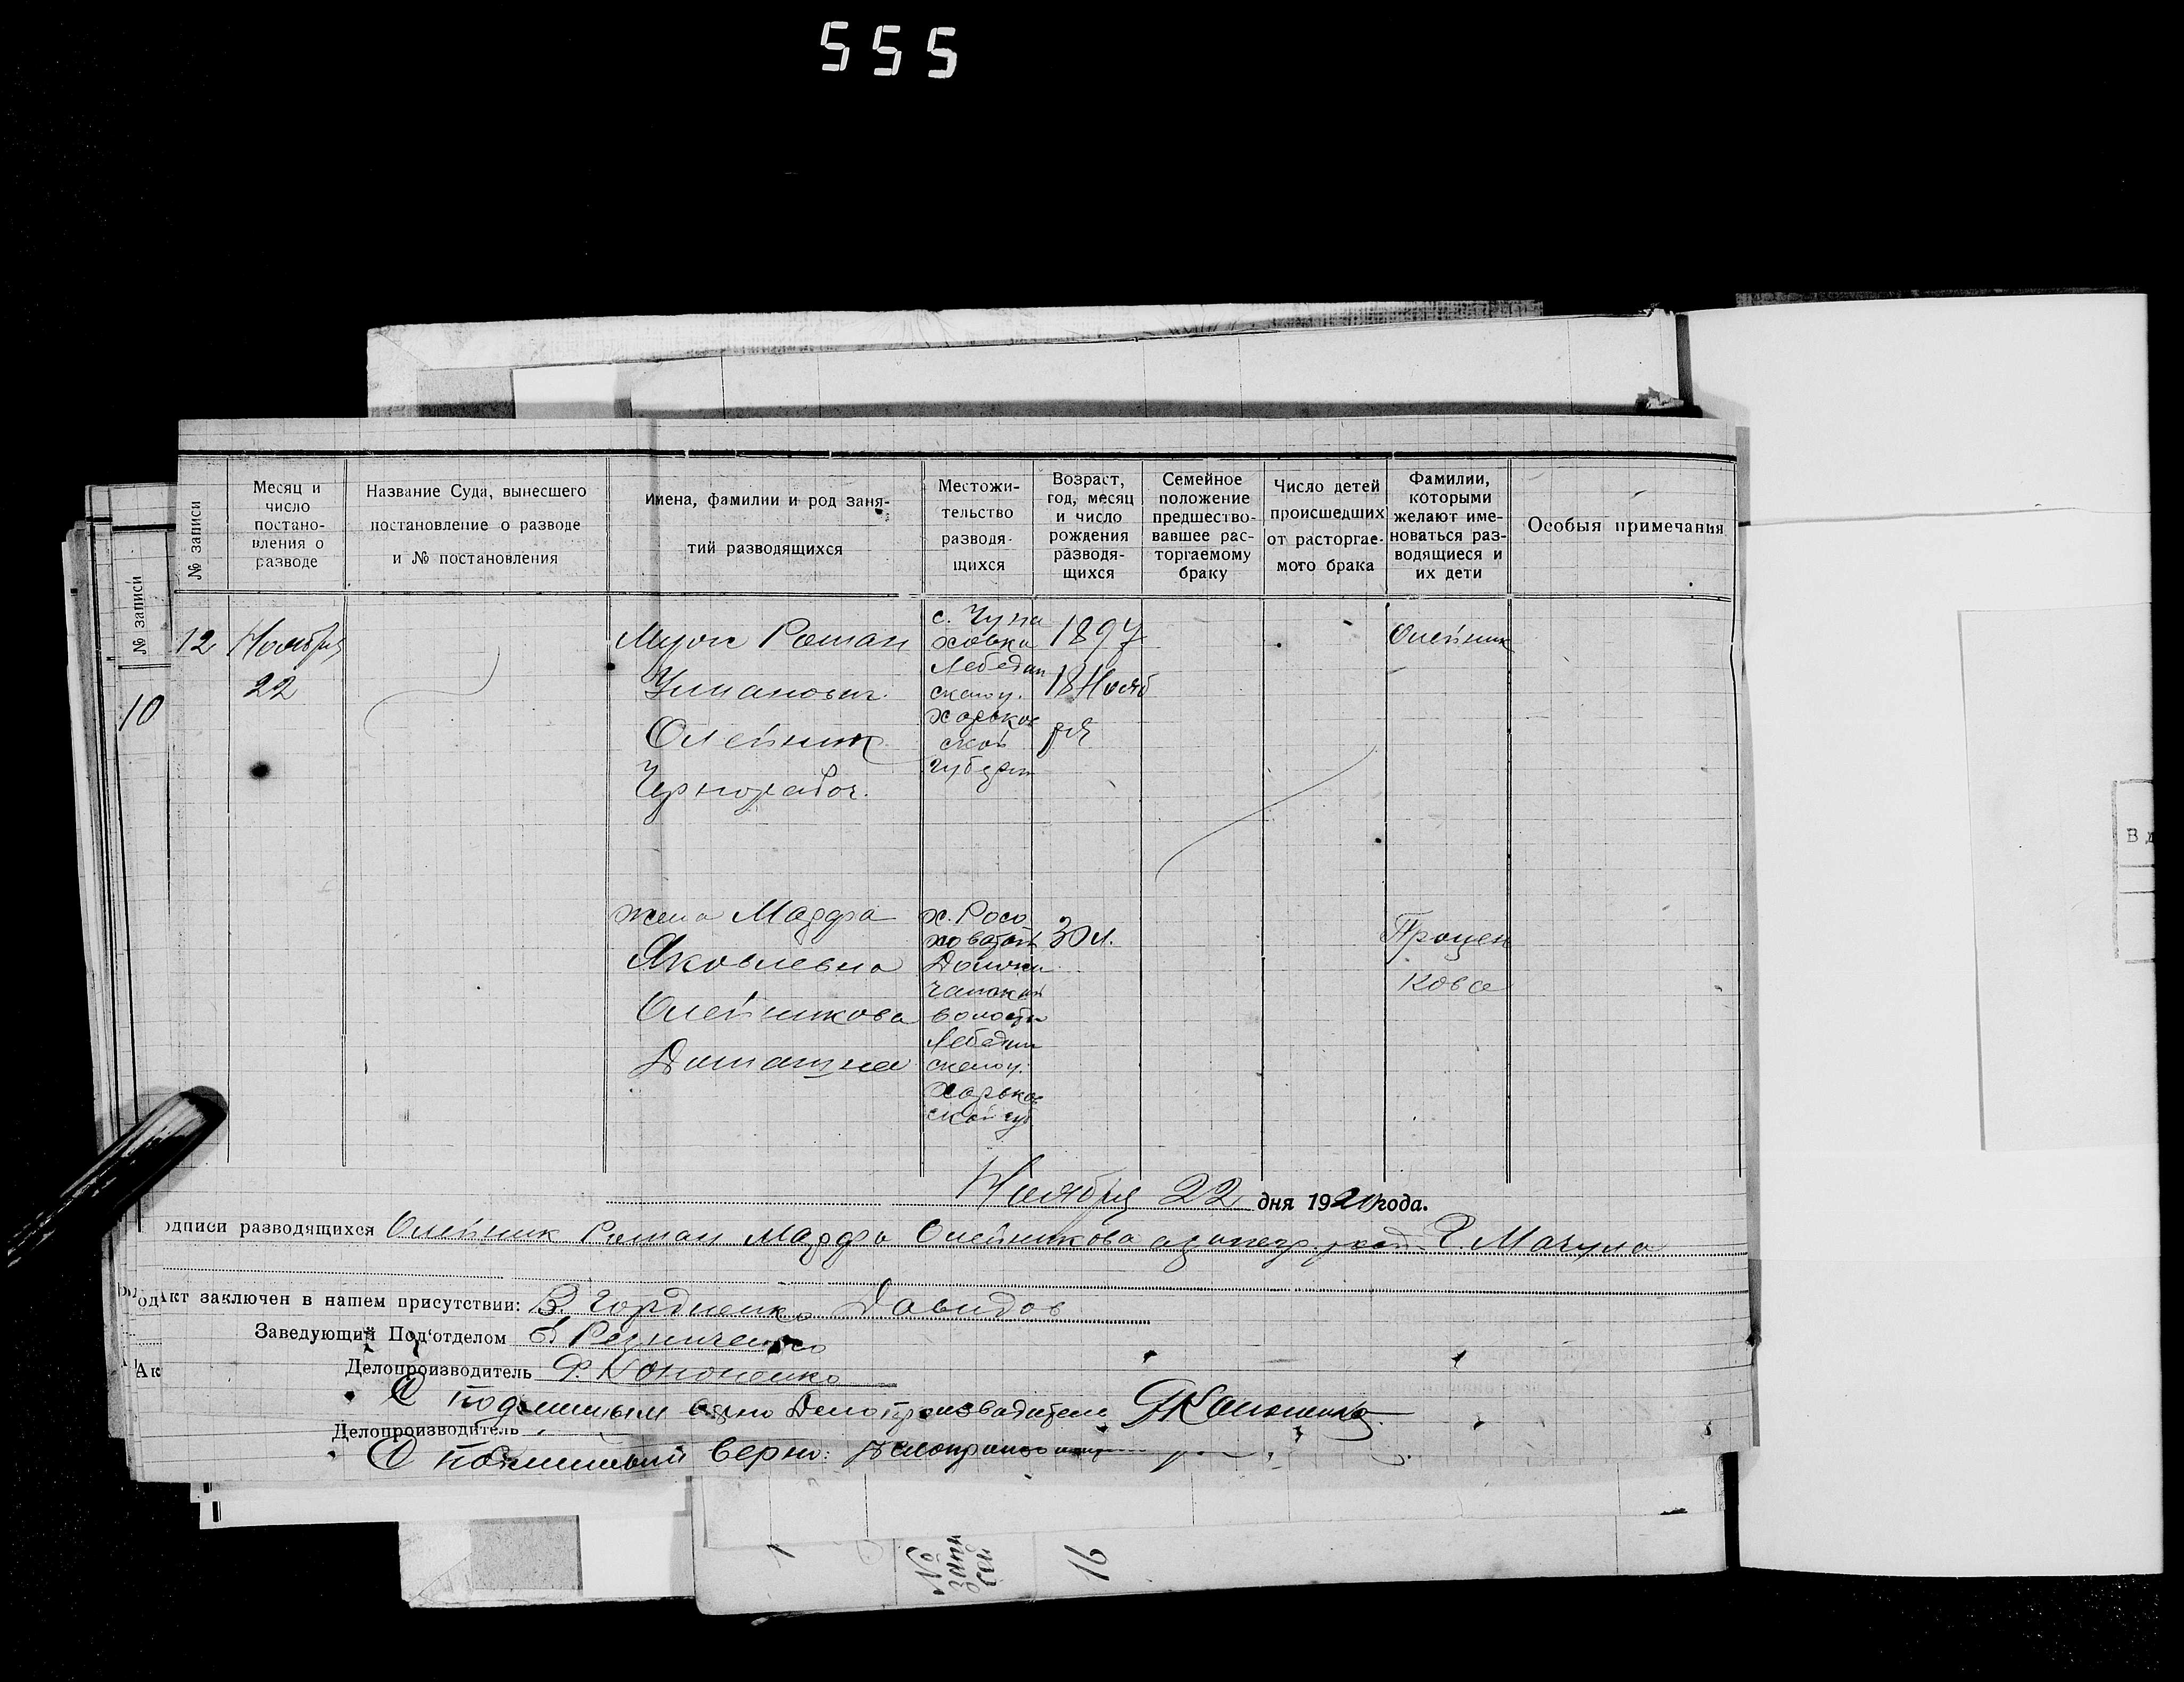 555
№ записи
Месяц и
число
постано-
вления о
разводе
Название Суда, вынесшего
постановление о разводе
и № постановления
Имена, фамилии и род заня-
тий разводящихся
Местожи-
тельство
разводя-
щихся
Возраст,
год, месяц
и число
рождения
разводя-
щихся
Семейное
положение
предшество-
вавшее рас-
торгаемому
браку
Число детей
происшедших
от расторгае-
мого брака
Фамилии,
которыми
желают име-
новаться раз-
водящиеся и
их дети
Особыя примечания
№ записи
10
12
Ноября
22
Роман
Олейник
Чернорабоч.
с. Чупа
ховка
Лебедин
ского у.
Харьков
ской
губерн
1897
18 Нояб
ря
Олейник
жена Марфа
Яковлевна
Олейникова
Домашнее
х. Росо
ховатой
волости
Лебедин
ского у.
Харьков
ской губ
30 л.
Процен
кова
Ноября 22 дня 1920 года.
одписи разводящихся Олейник Роман Марфа Олейникова Мачула
Акт заключен в нашем присутствии: В. Гордиенко Давидов
Заведующий Под'отделом Резниченко
Делопроизводитель Ф. Кононенко
С подлинным верно Делопроизводитель
Делопроизводитель
С подлинным верно:
од
Ак
В д
№
запи
сей
16